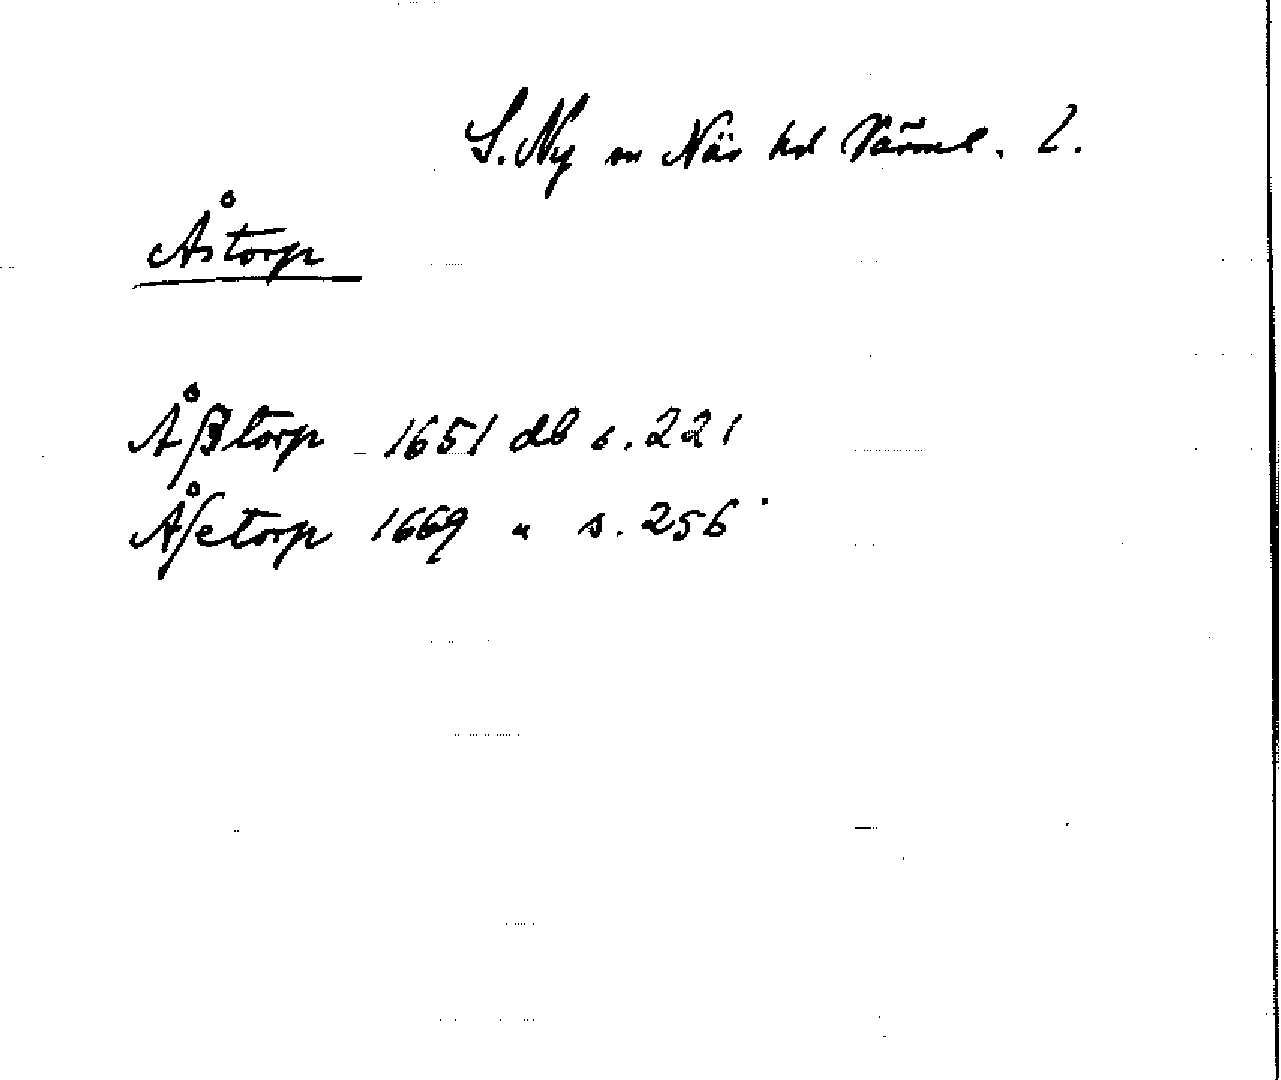 S. Ny sn Näs hd Värml. l.
Åstorp
Åßtorp 1651 db s. 221
Åſetorp 1669 " s. 256